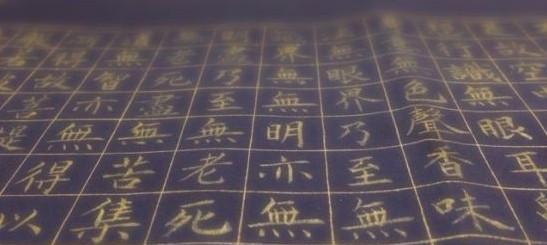 故空
行識無眼耳
無色聲香味
無眼界乃至無
界無無明亦無
明盡乃至無老死
死盡無苦集
無智亦無得以
故菩提